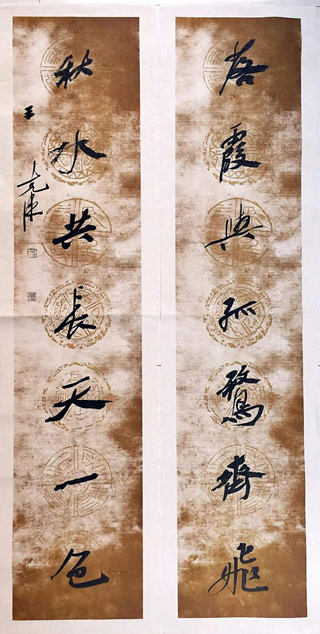 落霞與孤鶩齊飛
秋水共長天一色